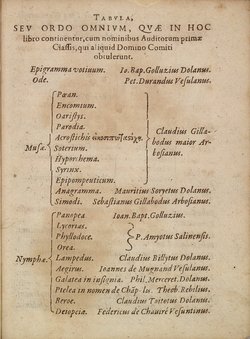 TABVLA,
SEV ORDO OMNIVM, QVÆ IN HOC
libro continentur, cum nominibus Auditorum primæ
Classis, qui aliquid Domino Comiti
obtulerunt.
Epigramma votiuum. Io. Bap. Golluzius Dolanus.
Ode. Pet. Durandus Vesulanus.
Pæan.
Encomium.
Oaristys.
Parodia.
Acrostichis
Musæ Soterium. Claudius Gilla-
bodus maior Ar-
bosianus.
Hyporhema.
Syrinx.
Epipompeuticum.
Anagramma. Mauritius Soryetus Dolanus.
Simodi. Sebastianus Gillabodus Arbosianus.
Panopea Ioan. Bapt. Golluzius.
Lycorias.
Phyllodoce. P. Amyotus Salinensis.
Orea.
Nymphæ Lampedus. Claudius Billytus Dolanus.
Aegirus. Ioannes de Mugnand Vesulanus.
Galatea in insignia Phil. Merceret. Dolanus.
Ptelea in nomen de Theob. Rebelius.
Beroe. Claudius Toitotus Dolanus.
Desiopœa. Federicus de Chauiré Vesuntinus.